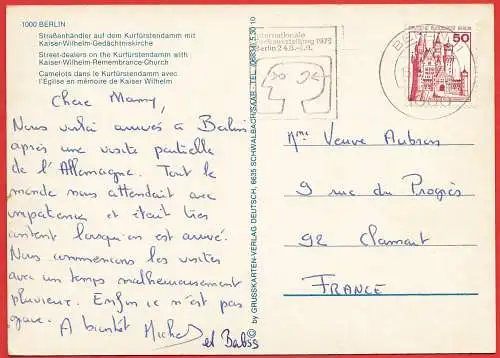 1000 BERLIN
Straßenhändler auf dem Kurfürstendamm mit
Kaiser-Wilhelm-Gedächtniskirche
Street-dealers on the Kurfürstendamm with
Kaiser-Wilhelm-Remembrance-Church
Camelots dans le Kurfürstendamm avec
l'Église en mémoire de Kaiser Wilhelm
Chere Mamy,
Nous voilà arrivés à Berlin
après une visite partielle
de l'Allemagne. Tout le
monde nous attendait avec
impatience et était très
content lorsqu'on est arrivé.
Nous commençons les visites
avec un temps malheureusement
pluvieux. Enfin ce n'est pas
grave. A bientôt Michel
et Babss
© by GRUSSKARTEN-VERLAG DEUTSCH, 6635 SCHWALBACH/SAAR - TEL. (06834) 5 30 10
Internationale
Funkausstellung 1979
Berlin 24.8.-2.9.
BERLIN
1000
DEUTSCHE BUNDESPOST BERLIN
50
Mme Veuve Aubrun
9 rue du Progrès
92 Clamart
FRANCE